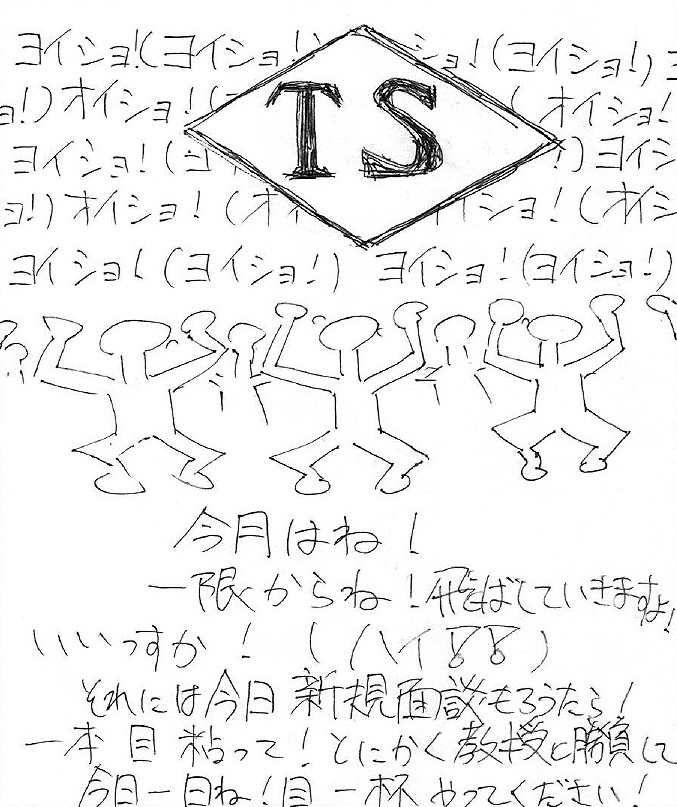 ヨイショ!(ヨイショ! ショ!(ヨイショ!)ヨ
ョ!)オイショ!( (オイショ!
TS
ヨイショ!(ヨイ !)ヨイシ
ョ!)オイショ!(オイ イショ!(オイシ
ヨイショ!(ヨイショ!) ヨイショ!(ヨイショ!)
今月はね!
一限からね!飛ばしていきますよ!
いいっすか!((ハイ!!)
それには今日新規面談もろうたら!
一本目粘って!とにかく教授と勝負して
今日一日ね!目一杯やってください!